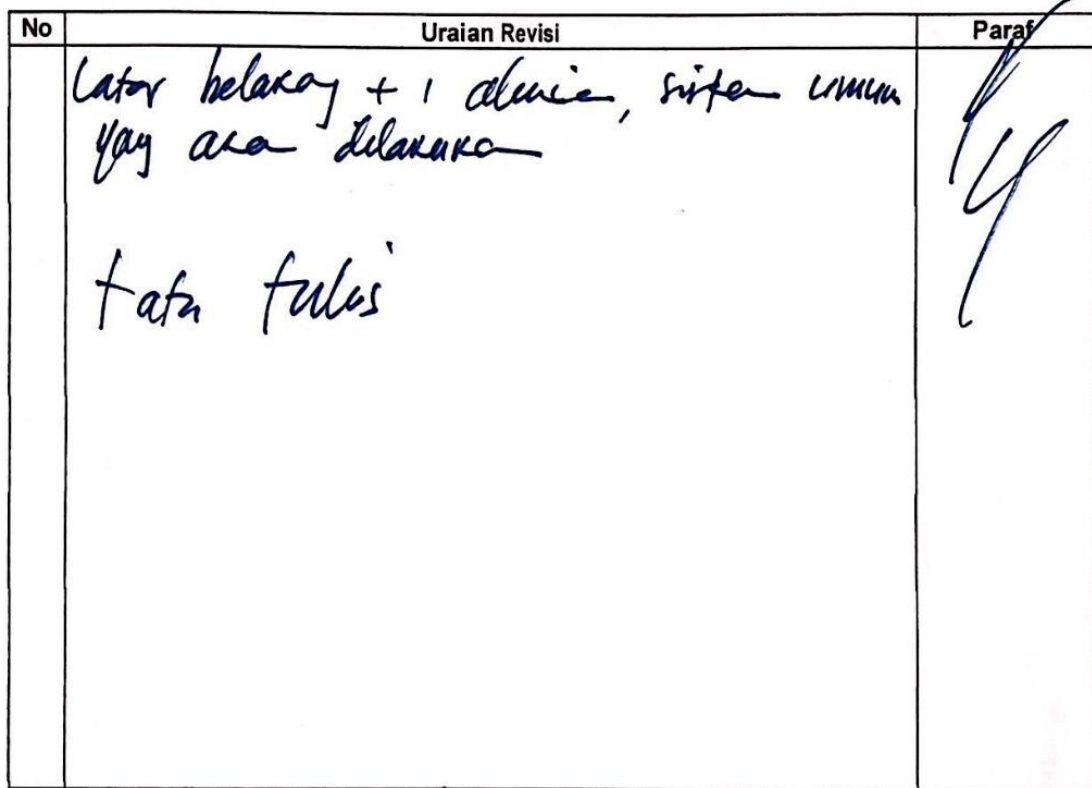 No Uraian Revisi Paraf
Latar belakang + 1 alinea, sistem umum
yang akan dilakukan
tata tulis